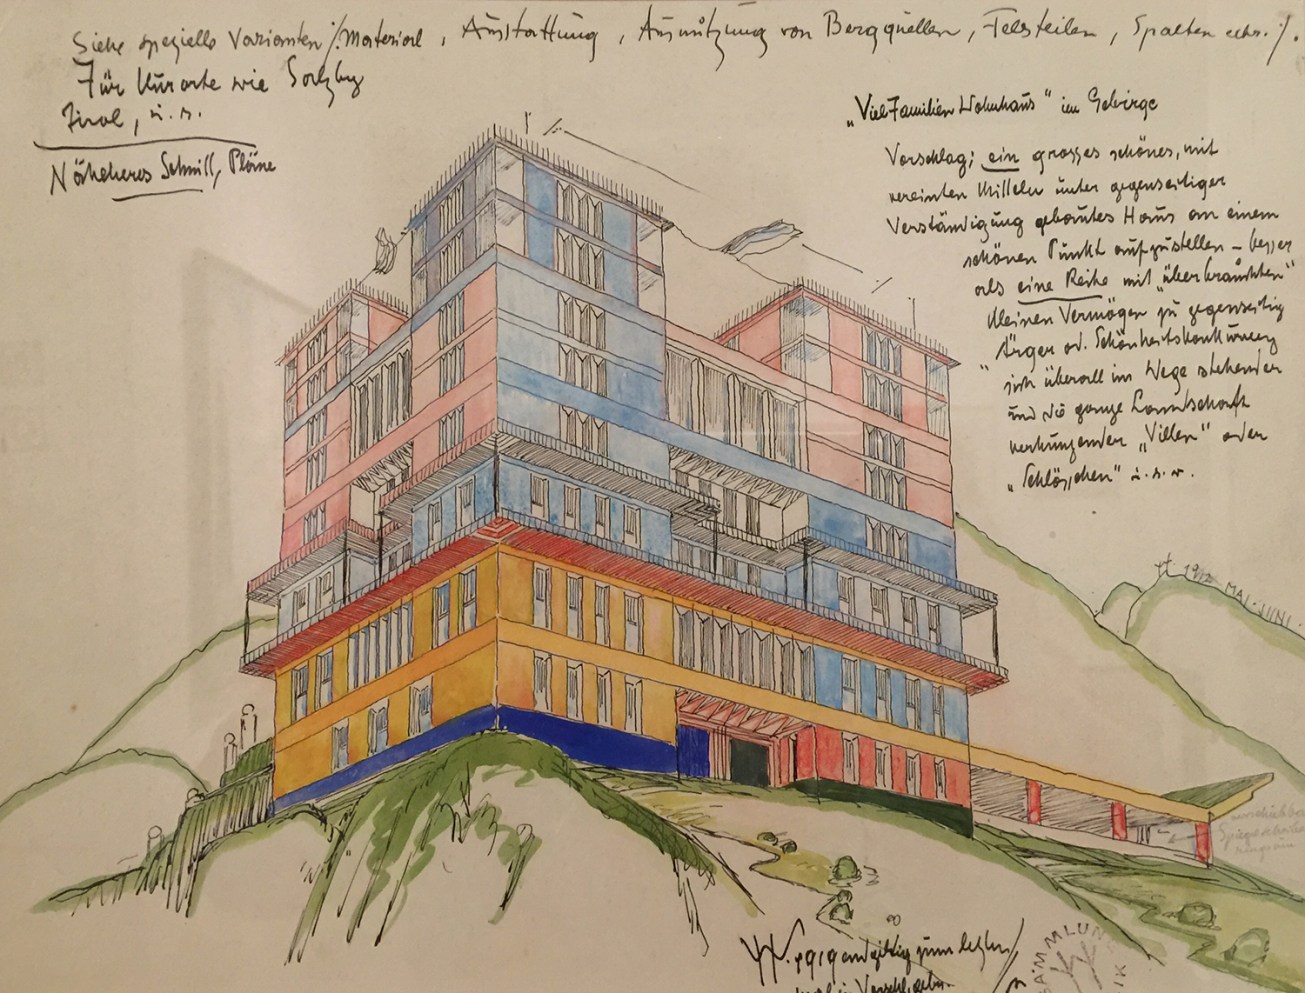 Siehe spezielle Varianten ·/. Material, Ausstattung, Ausnützung von Bergquellen, Felsteilen, Spalten ectr. ·/.
Für Kurorte wie Salzbg
Tirol, u. s.
Näheheres Schnitt, Pläne
„VielFamilienWohnhaus" im Gebirge
Vorschlag; ein grosses schönes, mit
vereinten Mitteln unter gegenseitiger
Verständigung gebautes Haus an einem
schönen Punkt aufzustellen – besser
als eine Reihe mit „überkränkten"
kleinen Vermögen zu gegenseitig
Ärger od. Schönheitskonkurrenz
sich überall im Wege stehender
und die ganze Landschaft
verhunzender „Villen" oder
„Schlösschen" u.s.w.
1912 MAI-JUNI.
ringsum
endgültig zum letzten
mal in Vorschl.
SAMMLUNG